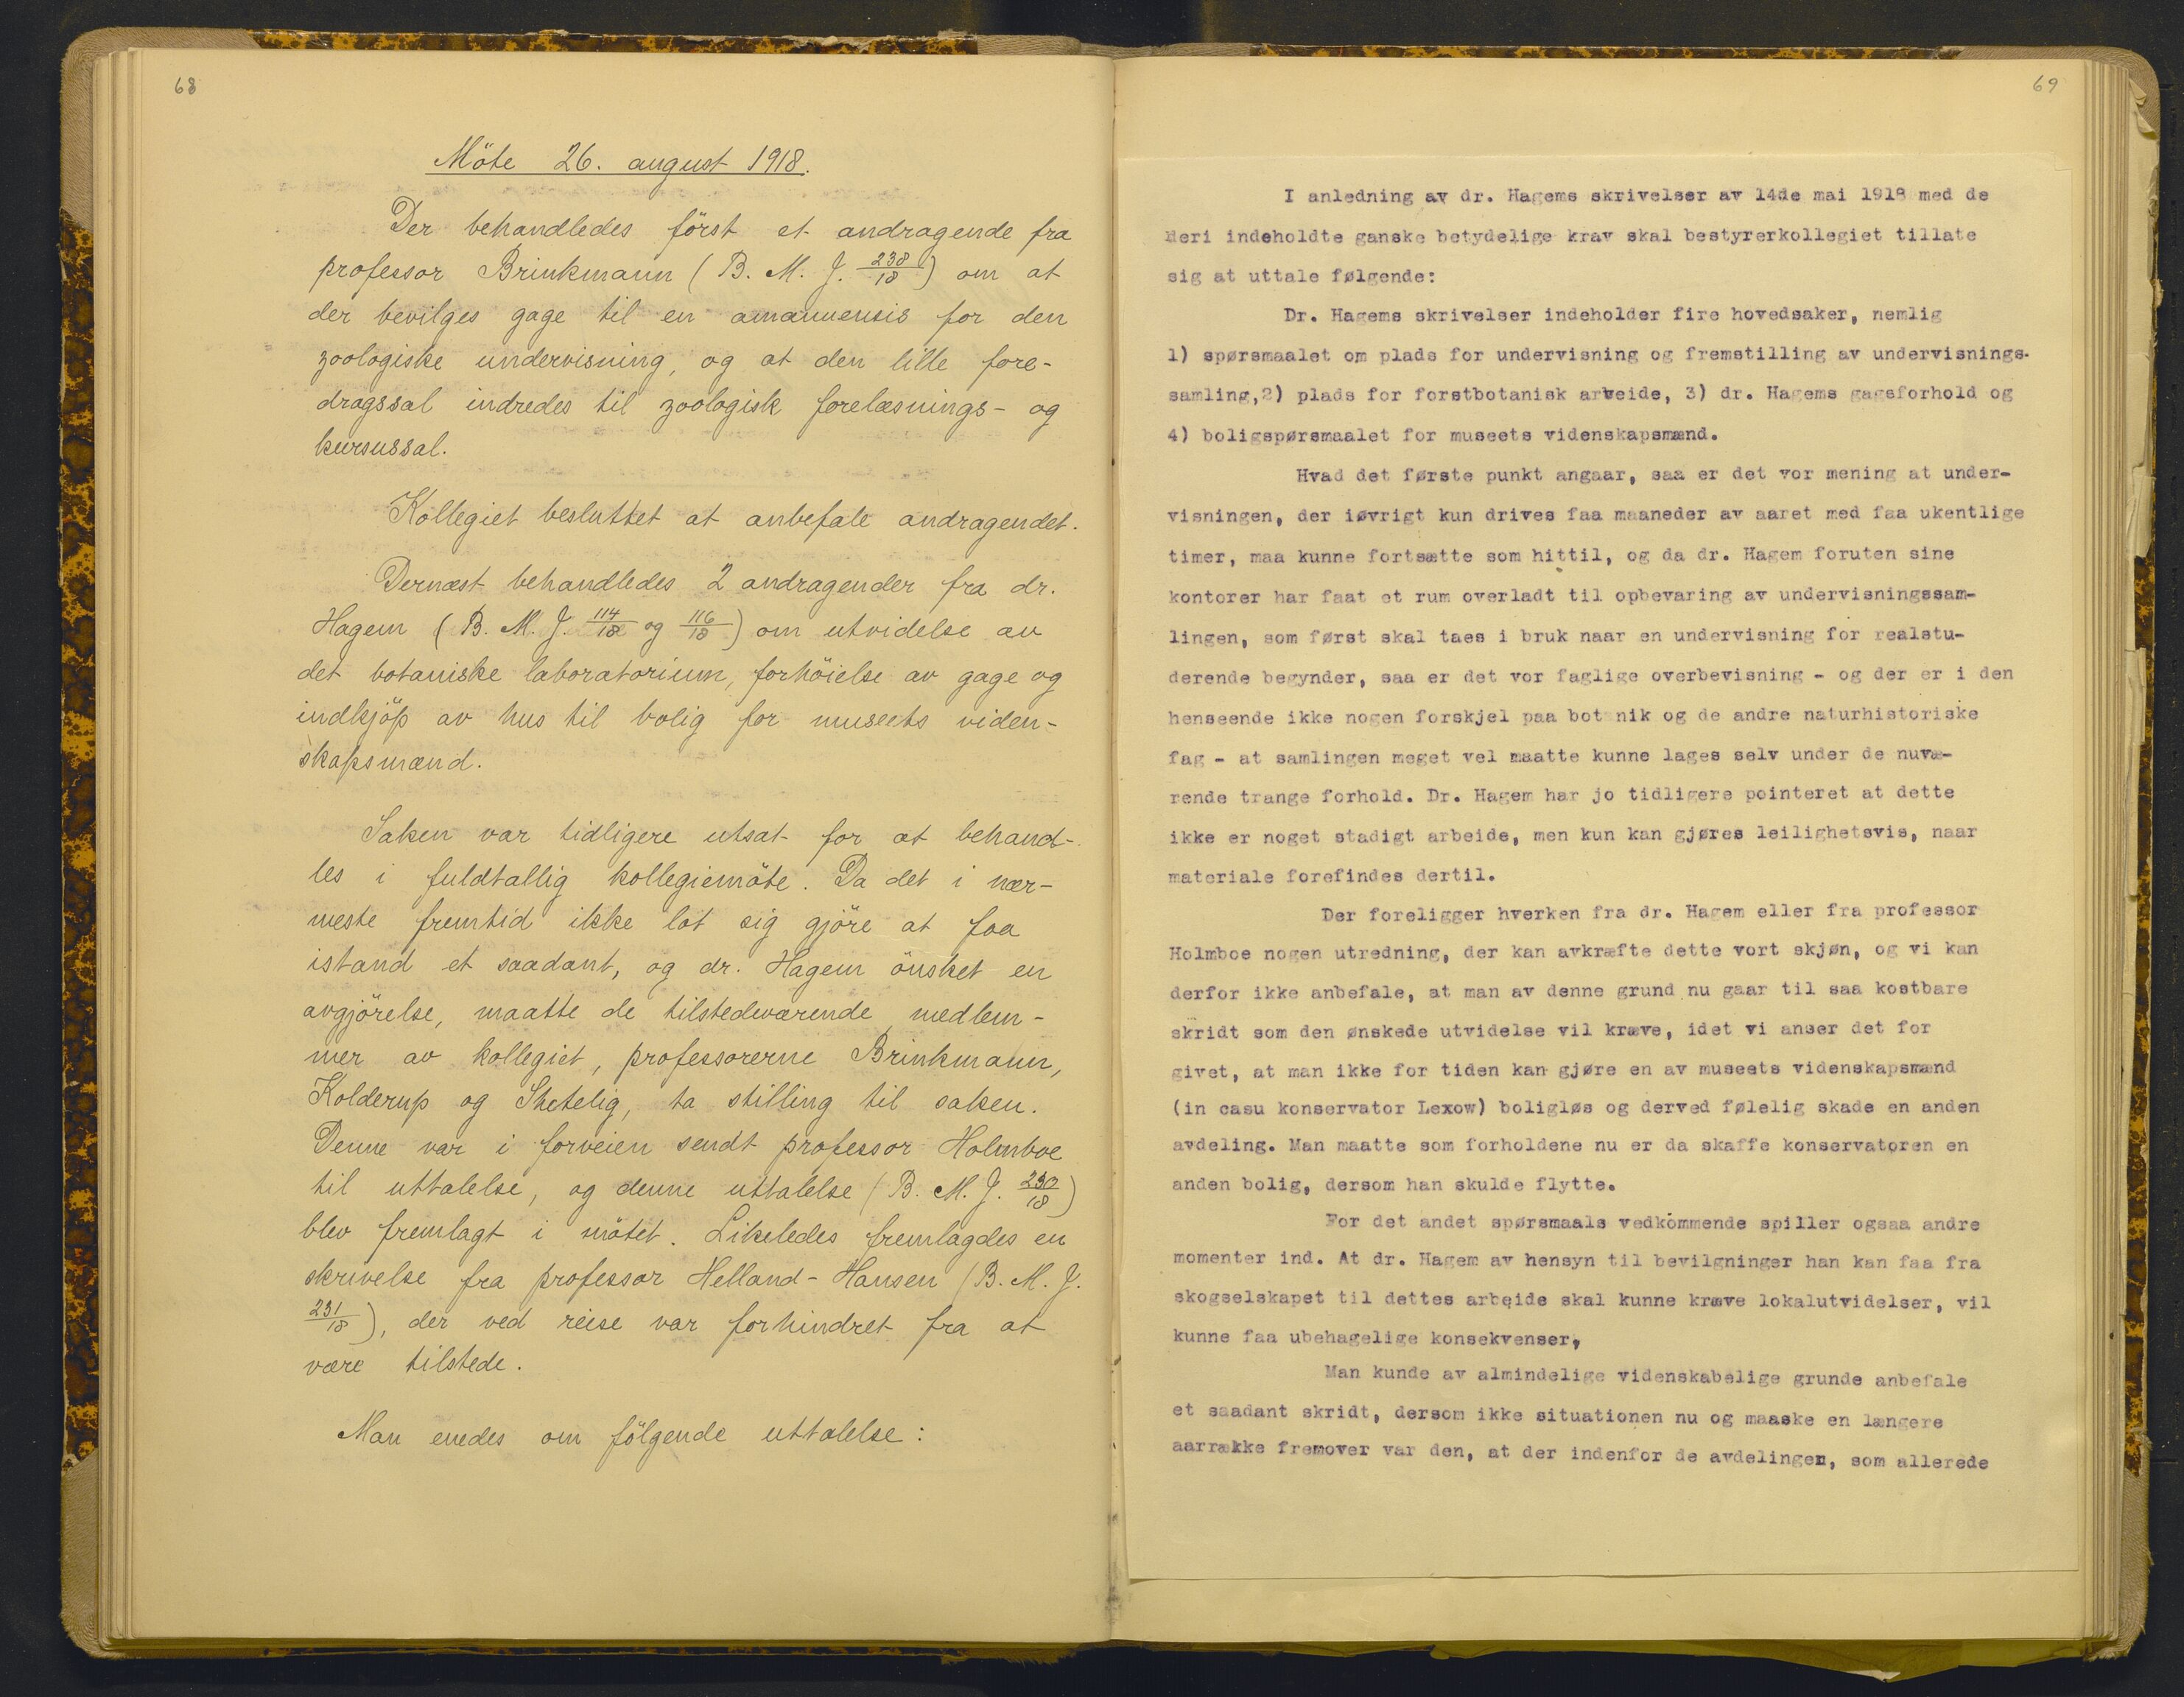 68
Möte 26. august 1918.
Der behandledes först et andragende fra
professor Brinkmann (B. M. J. 238/18) om at
der bevilges gage til en amanuensis for den
zoologiske undervisning, og at den lille fore-
dragssal indredes til zoologisk forelæsnings- og
kursussal.
Kollegiet besluttet at anbefale andragendet.
Dernæst behandledes 2 andragender fra dr.
Hagem (B. M. J. 114/18 og 116/18) om utvidelse av
det botaniske laboratorium, forhöielse av gage og
indkjöp av hus til bolig for museets viden-
skapsmænd.
Saken var tidligere utsat for at behand-
les i fuldtallig kollegiemöte. Da det i nær-
meste fremtid ikke lot sig gjöre at faa
istand et saadant, og dr. Hagem önsket en
avgjörelse, maatte de tilstedeværende medlem-
mer av kollegiet, professorerne Brinkmann,
Kolderup og Shetelig, ta stilling til saken.
Denne var i forveien sendt professor Holmboe
til uttalelse, og denne uttalelse (B. M. J. 230/18)
blev fremlagt i mötet. Likeledes fremlagdes en
skrivelse fra professor Helland-Hansen (B. M. J.
231/18), der ved reise var forhindret fra at
være tilstede.
Man enedes om fölgende uttalelse:
69
I anledning av dr. Hagems skrivelser av 14de mai 1918 med de
deri indeholdte ganske betydelige krav skal bestyrerkollegiet tillate
sig at uttale følgende:
Dr. Hagems skrivelser indeholder fire hovedsaker, nemlig
1) spørsmaalet om plads for undervisning og fremstilling av undervisnings-
samling,2) plads for forstbotanisk arbeide, 3) dr. Hagems gageforhold og
4) boligspørsmaalet for museets videnskapsmænd.
Hvad det første punkt angaar, saa er det vor mening at under-
visningen, der iøvrigt kun drives faa maaneder av aaret med faa ukentlige
timer, maa kunne fortsætte som hittil, og da dr. Hagem foruten sine
kontorer har faat et rum overladt til opbevaring av undervisningssam-
lingen, som først skal taes i bruk naar en undervisning for realstu-
derende begynder, saa er det vor faglige overbevisning - og der er i den
henseende ikke nogen forskjel paa botanik og de andre naturhistoriske
fag - at samlingen meget vel maatte kunne lages selv under de nuvæ-
rende trange forhold. Dr. Hagem har jo tidligere pointeret at dette
ikke er noget stadigt arbeide, men kun kan gjøres leilighetsvis, naar
materiale forefindes dertil.
Der foreligger hverken fra dr. Hagem eller fra professor
Holmboe nogen utredning, der kan avkræfte dette vort skjøn, og vi kan
derfor ikke anbefale, at man av denne grund nu gaar til saa kostbare
skridt som den ønskede utvidelse vil kræve, idet vi anser det for
givet, at man ikke for tiden kan gjøre en av museets videnskapsmænd
(in casu konservator Lexow) boligløs og derved følelig skade en anden
avdeling. Man maatte som forholdene nu er da skaffe konservatoren en
anden bolig, dersom han skulde flytte.
For det andet spørsmaals vedkommende spiller ogsaa andre
momenter ind. At dr. Hagem av hensyn til bevilgninger han kan faa fra
skogselskapet til dettes arbeide skal kunne kræve lokalutvidelser, vil
kunne faa ubehagelige konsekvenser,
Man kunde av almindelige videnskabelige grunde anbefale
et saadant skridt, dersom ikke situationen nu og maaske en længere
aarrække fremover var den, at der indenfor de avdelingen, som allerede